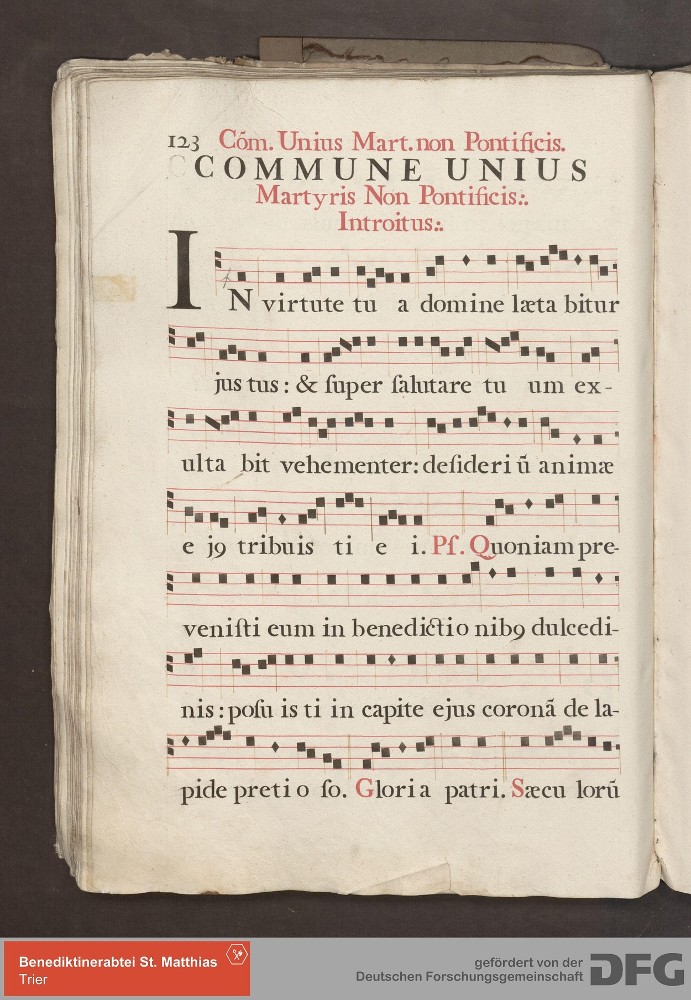 123 Cōm. Unius Mart. non Pontificis.
COMMUNE UNIUS
Martyris Non Pontificis:.
Introitus:.
IN virtute tu a domine læta bitur
jus tus : & ſuper ſalutare tu um ex-
ulta bit vehementer: deſideri ū animæ
e j9 tribuis ti e i. Pſ. Quoniam pre-
veniſti eum in benedictio nib9 dulcedi-
nis : poſu is ti in capite ejus coronā de la-
pide preti o ſo. Gloria patri. Sæcu lorū
Benediktinerabtei St. Matthias
Trier
gefördert von der
Deutschen Forschungsgemeinschaft
DFG